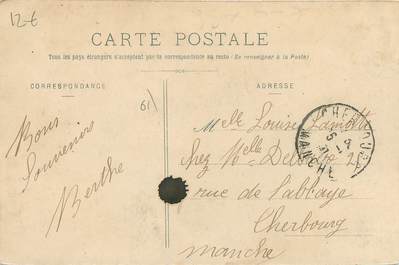 12-€
CARTE POSTALE
Tous les pays étrangers n'acceptent pas la correspondance au recto (Se renseigner à la Poste)
CORRESPONDANCE
ADRESSE
61
Bons
Souvenirs
Berthe
Melle Louise Lamotte
chez Melle
rue de l'abbaye
Cherbourg
manche
CHERBOURG
MANCHE